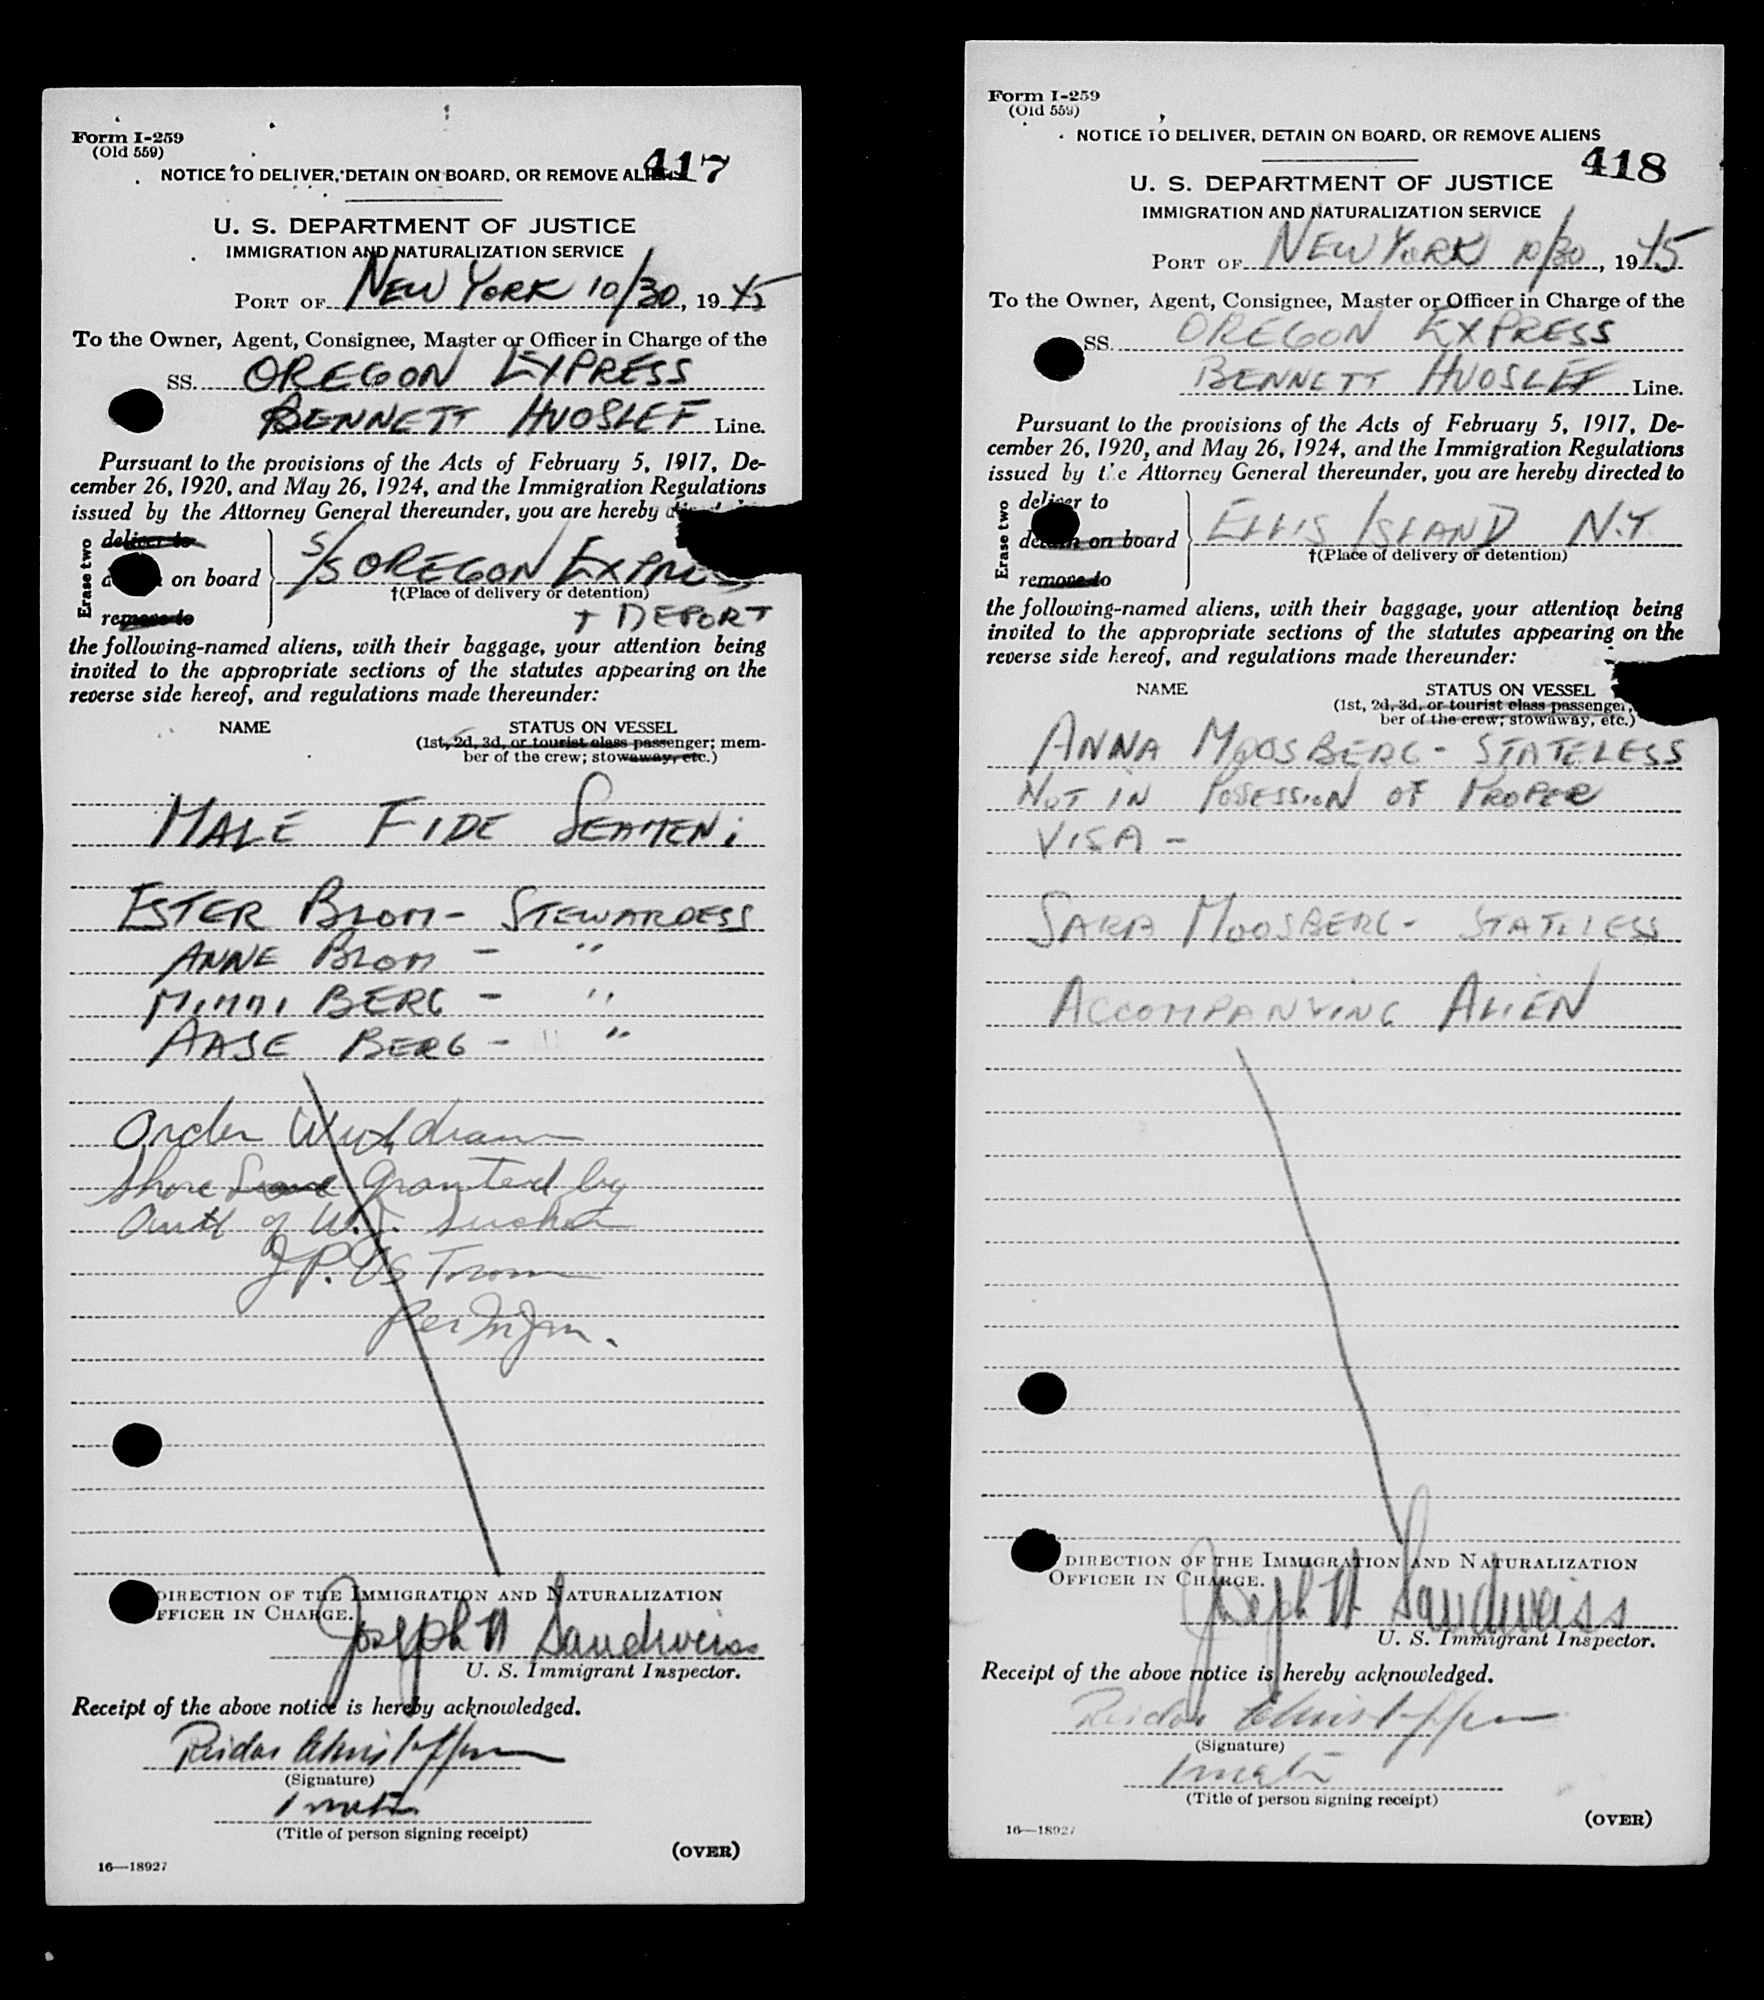 Form I-259
(Old 559)
NOTICE TO DELIVER, DETAIN ON BOARD, OR REMOVE ALIENS
417
U. S. DEPARTMENT OF JUSTICE
IMMIGRATION AND NATURALIZATION SERVICE
PORT OF NEW YORK 10/30, 1945
To the Owner, Agent, Consignee, Master or Officer in Charge of the
SS. OREGON EXPRESS
BENNETT HVOSLEF Line.
Pursuant to the provisions of the Acts of February 5, 1917, De-
cember 26, 1920, and May 26, 1924, and the Immigration Regulations
issued by the Attorney General thereunder, you are hereby
Erase two
deliver to
on board
remove to
S/S OREGON EXPRESS
†(Place of delivery or detention)
+ DEPORT
the following-named aliens, with their baggage, your attention being
invited to the appropriate sections of the statutes appearing on the
reverse side hereof, and regulations made thereunder:
NAME STATUS ON VESSEL
(1st, 2d, 3d, or tourist class passenger; mem-
ber of the crew; stowaway, etc.)
MALE FIDE SEAMEN:
ESTER BLOM - STEWARDESS
ANNE BLOM - "
MIMMI BERG - "
AASE BERG - "
Order Withdrawn
Shore Leave granted by
Auth of W.J.
J.P.
Per
DIRECTION OF THE IMMIGRATION AND NATURALIZATION
OFFICER IN CHARGE.
Joseph W Sandweiss
U. S. Immigrant Inspector.
Receipt of the above notice is hereby acknowledged.
Reidar Christoffersen
(Signature)
1 mate
(Title of person signing receipt)
(OVER)
16—18927
Form I-259
(Old 559)
NOTICE TO DELIVER, DETAIN ON BOARD, OR REMOVE ALIENS
418
U. S. DEPARTMENT OF JUSTICE
IMMIGRATION AND NATURALIZATION SERVICE
PORT OF NEW YORK 10/30, 1945
To the Owner, Agent, Consignee, Master or Officer in Charge of the
SS. OREGON EXPRESS
BENNETT HVOSLEF Line.
Pursuant to the provisions of the Acts of February 5, 1917, De-
cember 26, 1920, and May 26, 1924, and the Immigration Regulations
issued by the Attorney General thereunder, you are hereby directed to
Erase two
deliver to
detain on board
remove to
ELLIS ISLAND N.Y.
†(Place of delivery or detention)
the following-named aliens, with their baggage, your attention being
invited to the appropriate sections of the statutes appearing on the
reverse side hereof, and regulations made thereunder:
NAME STATUS ON VESSEL
(1st, 2d, 3d, or tourist class passenger,
ber of the crew; stowaway, etc.)
ANNA MOOSBERG - STATELESS
NOT IN POSESSION OF PROPER
VISA -
SARA MOOSBERG - STATELESS
ACCOMPANYING ALIEN
DIRECTION OF THE IMMIGRATION AND NATURALIZATION
OFFICER IN CHARGE.
Joseph W Sandweiss
U. S. Immigrant Inspector.
Receipt of the above notice is hereby acknowledged.
Reidar Christoffersen
(Signature)
1 mate
(Title of person signing receipt)
(OVER)
16—18927